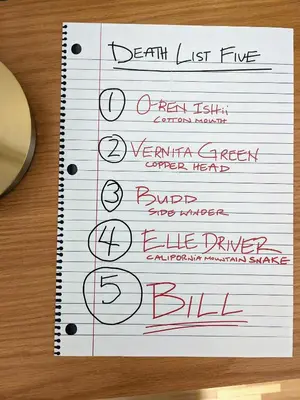 DEATH LIST FIVE
1 O-REN ISHii
COTTON MOUTH
2 VERNITA GREEN
COPPER HEAD
3 BUDD
SIDE WINDER
4 ELLE DRIVER
CALIFORNIA MOUNTAIN SNAKE
5 BILL